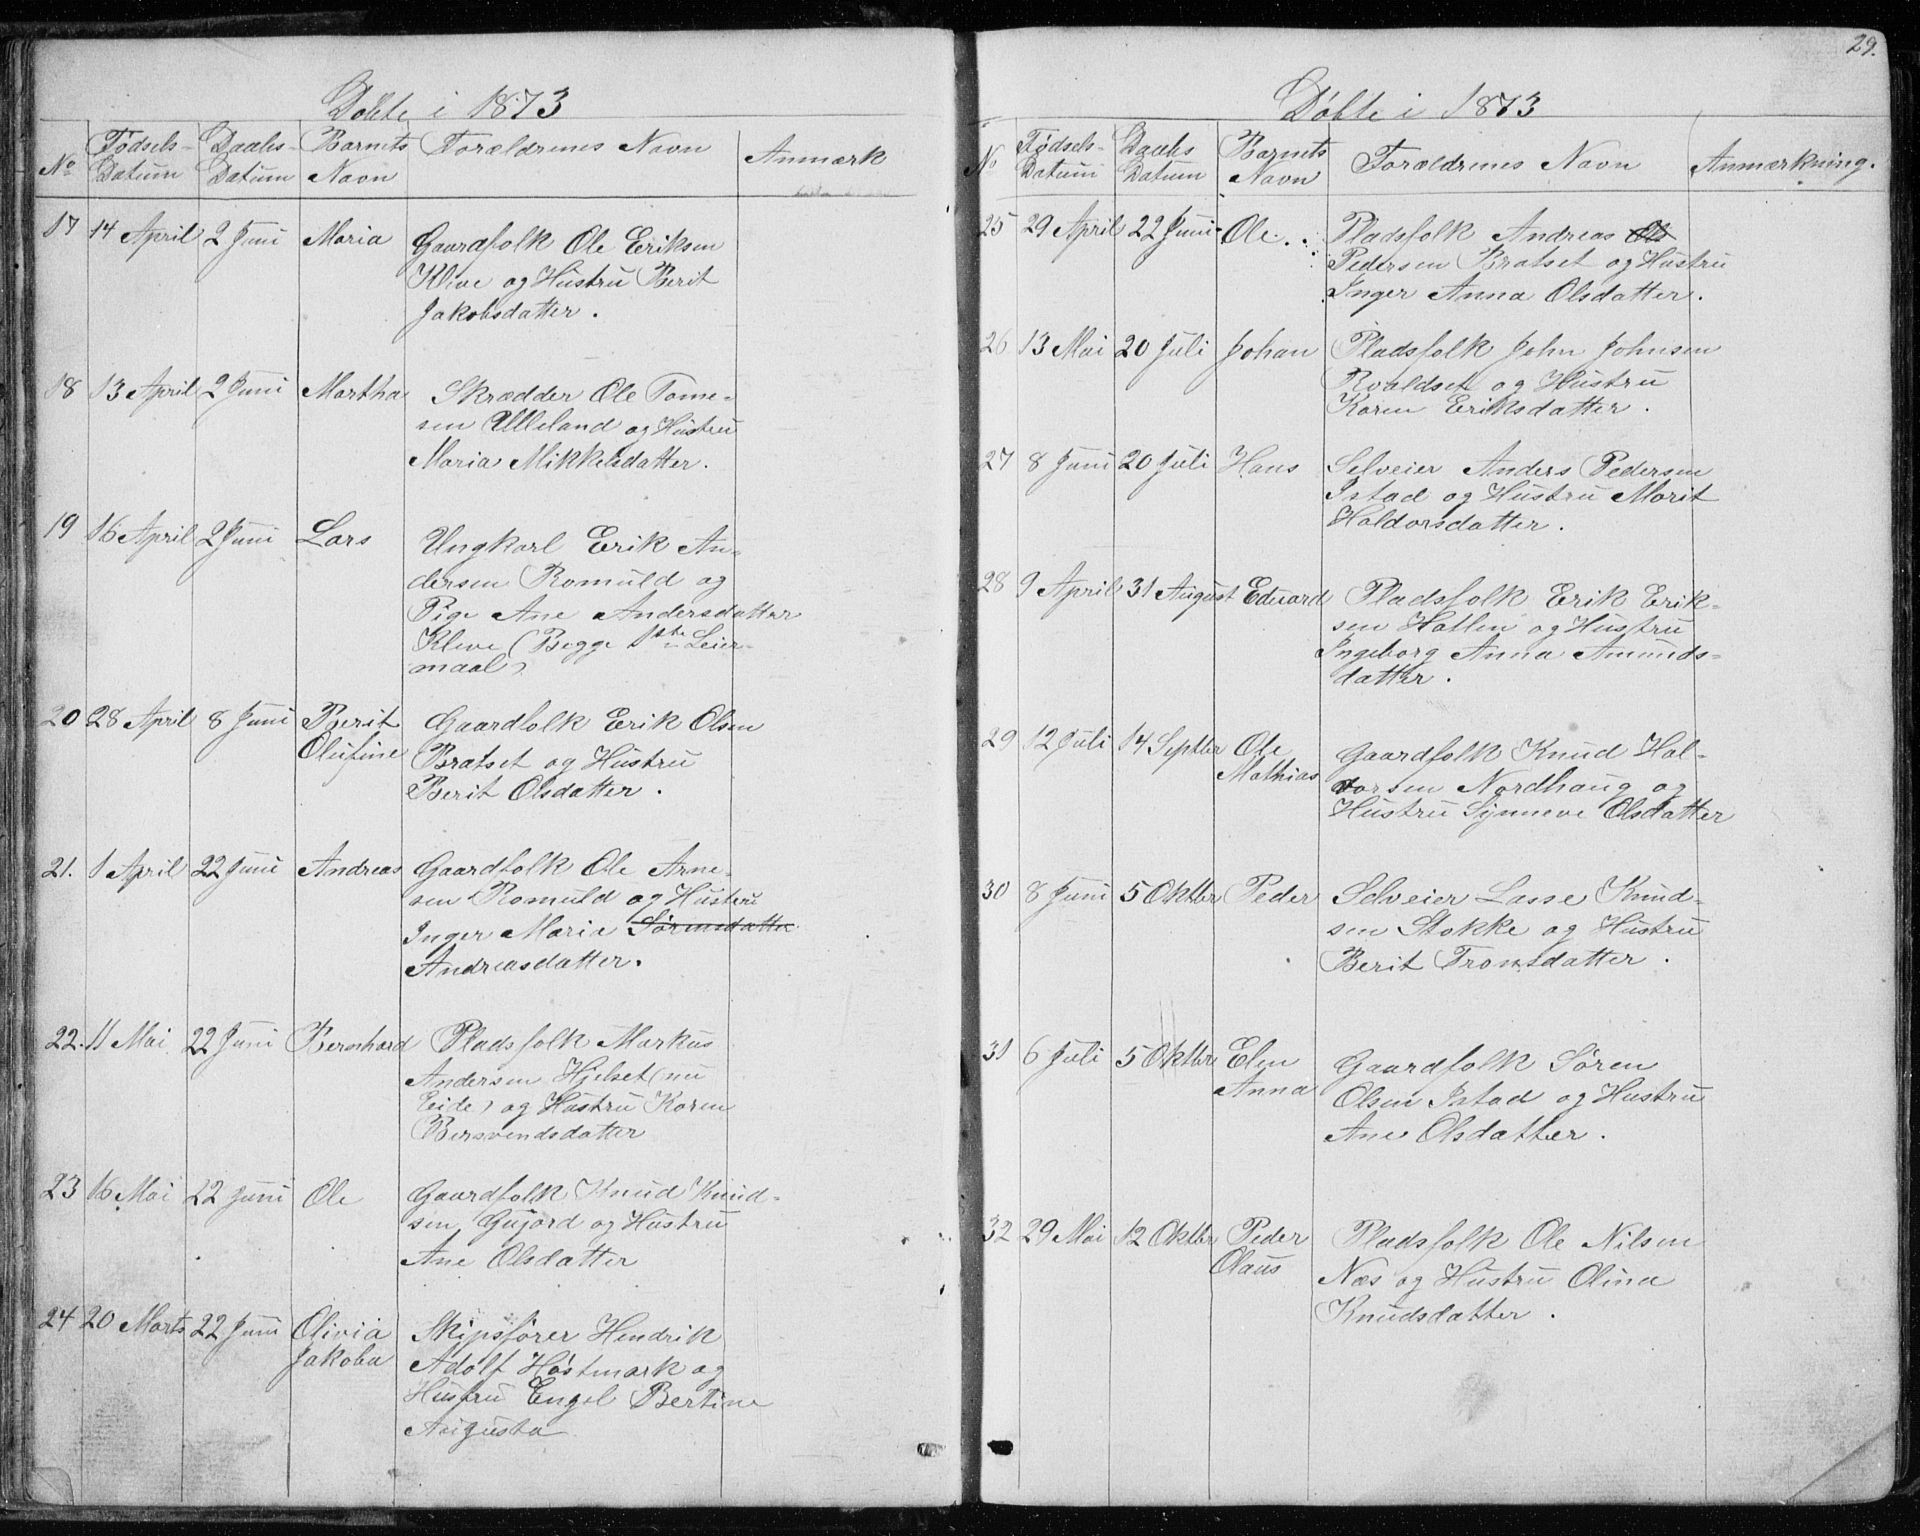 Døbte i 1873
No Fødsels- Datum Daabs- Datum Barnets Navn Forældrenes Navn Anmærk
17 14 April 2 Juni Maria Gaardfolk Ole Eriksen
Klive og Hustru Berit
Jakobsdatter.
18 13 April 2 Juni Martha Skrædder Ole Tome-
sen Ulleland og Hustru
Maria Mikkelsdatter.
19 16 April 2 Juni Lars Ungkarl Erik An-
dersen Romuld og
Pige Ane Andersdatter
Kleve (Begge 1ste Leier-
maal)
20 28 April 8 Juni Berit Gaardfolk Erik Olsen
Olufine Bratset og Hustru
Berit Olsdatter.
21. 1 April 22 Juni Andreas Gaardfolk Ole Arne-
sen Romuld og Hustru
Inger Maria Sørensdatter
Andreasdatter.
22. 11 Mai 22 Juni Bernhard Pladsfolk Markus
Andersen Hjelset (nu
Eide) og Hustru Karen
Bersvendsdatter
23 16 Mai 22 Juni Ole Gaardfolk Knud Knud-
sen Gujord og Hustru
Ane Olsdatter
24 20 Marts 22 Juni Olivia Skipsfører Hendrik
Jakoba Adolf Høstmark og
Hustru Engel Bertine
Augusta
29.
Døbte i 1873
No Fødsels- Datum Daabs Datum Barnets Navn Forældrenes Navn Anmærkning.
25 29 April 22 Juni Ole. Pladsfolk Andreas Ols
Pedersen Bratset og Hustru
Inger Anna Olsdatter.
26 13 Mai 20 Juli Johan Pladsfolk John Johnsen
Roaldset og Hustru
Karen Eriksdatter.
27 8 Juni 20 Juli Hans Selveier Anders Pedersen
Istad og Hustru Marit
Haldorsdatter.
28 9 April 31 August Eduard Pladsfolk Erik Erik-
sen Hallen og Hustru
Ingeborg Anna Amunds-
datter.
29 12 Juli 14 Septbr Ole Gaardfolk Knud Hal-
Mathias dorsen Nordhaug og
Hustru Synneve Olsdatter
30 8 Juni 5 Oktbr Peder Selveier Lasse Knud-
sen Stokke og Hustru
Berit Tronsdatter.
31 6 Juli 5 Oktbr Elen Gaardfolk Søren
Anna Olsen Istad og Hustru
Ane Olsdatter.
32 29 Mai 12 Oktbr Peder Pladsfolk Ole Nilsen
Olaus Næs og Hustru Olina
Knudsdatter.